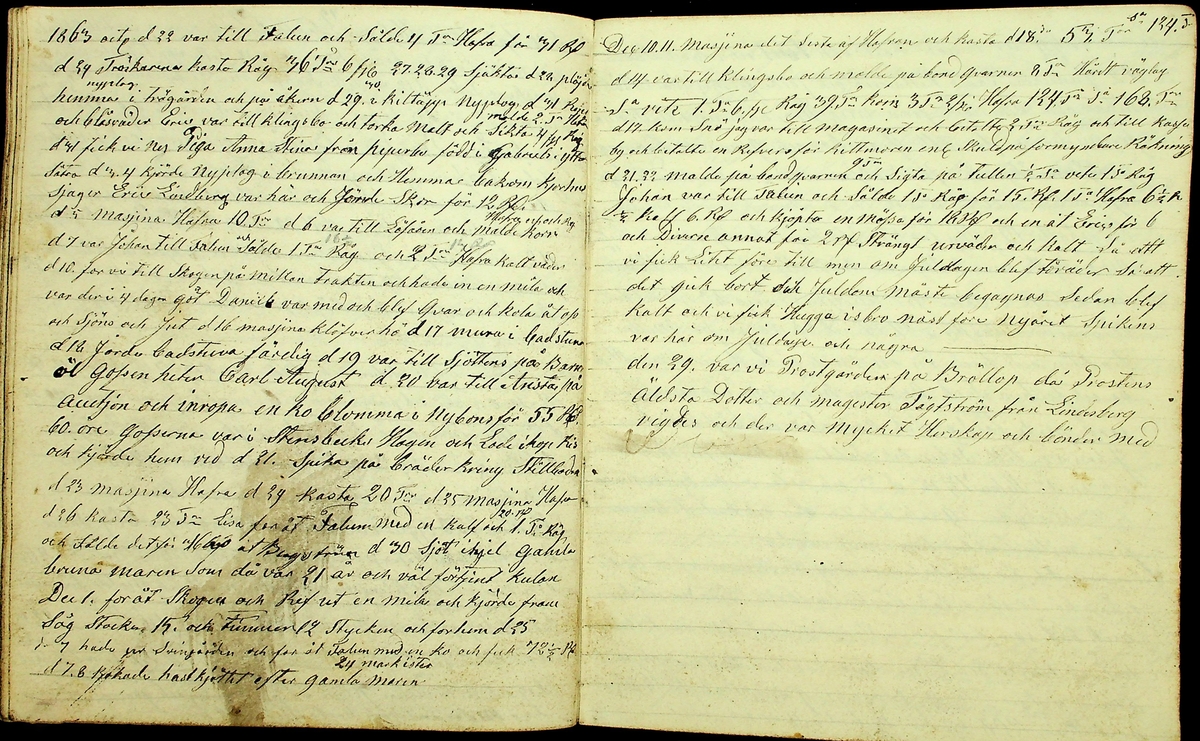 1863 octo d 22 var till Falun och Sålde 4 Tnr Hafra för 31 Rd
d 24 Tröskarena kasta Råg 46 Tnr 6 27.28.29 Sjäktat d 22 plöjde
nyplog 30
hemma i trägården och på åkern d 29. i kiltäppa Nyplog d 31 Regn
malde 2 Tnr
och blåsväder Eric var till klingsbo och torka Malt och Sikta 4 Råg
d 31 fick vi Ner Piga Anna Stina från pejerbo född i Gabriels ytter
Sätra d 3.4 kjörde Nyplog i brunnan och Hemma bakom kjortnin
Sjager Eric Lindberg var här och Gjorde Skor för 12 Rd
Hafra
d 5 masjina Hafra 10. Tnr d 6 var till Löfåsen och Malde korn
d 7 var Johan till Falun och Sålde 1 Tna Råg och 2 Tnr Hafra kalt väder
d 10. for vi till Skogen på mitton trakten och hade in en mila och
var der i 4 dagar gåt Daniel var med och blef Qvar och kola åt oss
och Sjöns och Jut d 16 masjina klöfver hö d 17 mura i Badstuna
d 18 Jorde badstuva färdig d 19 var till Sjöttens på Barns
öl Gossen heter Carl August d. 20 var till Arista på
Auctjon och inropa en ko Blomma i Nybons för 55 Rd
60. öre Gosserna var i Stensbecks Hagen och Lade ihop Ris
och kjörde hem ved d 21. Spika på bräder kring Ställbodan
d 23 masjina Hafra d 24 kasta 20 Tnr d 25 masjina Hafra
d 26 kasta 23 Tnr Lisa for åt Falun med en kalf och 1. Ta Råg
20 Rd
och Sålde det för åt Bergström d 30 Sjöt ihjel Gamla
bruna maren Som då var 21 år och väl förtjent kulan
Dec 1. for åt Skogen och Ref ut en mila och kjörde fram
Såg Stockar 15 och timmer 12 Stycken och for hem d 25
hade jur Svinjården och for åt Falun med en ko och fick 72½ Rd
24 mark ister
d 7.8 kokade hästkjöttet efter gamla maren
Sa 124. T
Dec 10.11. Masjina det sista af Hafran och kasta d 18. 53. Tnr
d 14 var till klingsbo och malde på bond qvarnen 8 Tnr Hårdt väglag
Sa vete 1. Ta 6. Råg 39 Tnr korn 3 Tnr Hafra 124 Tnr Sa 168. Tnr
d 17 kom Snö jag var till magasinet och betalte 2 Tnr Råg och till karls
by och betalte en Revers för Rittmoren en Skuld på förmyndare Räkning
9 Tnr
d 21.22 malde på bondqvarnen och Sigta på tullen ½ Ta vete 1 Ta Råg
Johan var till Falun och Sålde 1 Ta Råg för 15. Rd. 1 Ta Hafra 6½ R
½ Kalf 6. Rd och kjöpte en mössa för 1 Rd och en åt Eric för 6
och Diverse annat för 2 Rd Strängt urväder och kalt Så att
vi fick Lätt före till men om Juldagen blef töväder Så att
det gick bort och Hjuldon måste begagnas Sedan blef
kalt och vi fick Hugga isbro näst före Nyåret Spikens
var här om Juldagen och några
den 29. var vi Prostgården på Bröllop då Prostens
Äldsta Dotter och magister Tägtström från Lindesberg
vigdes och der var mycket Herskap och bönder med